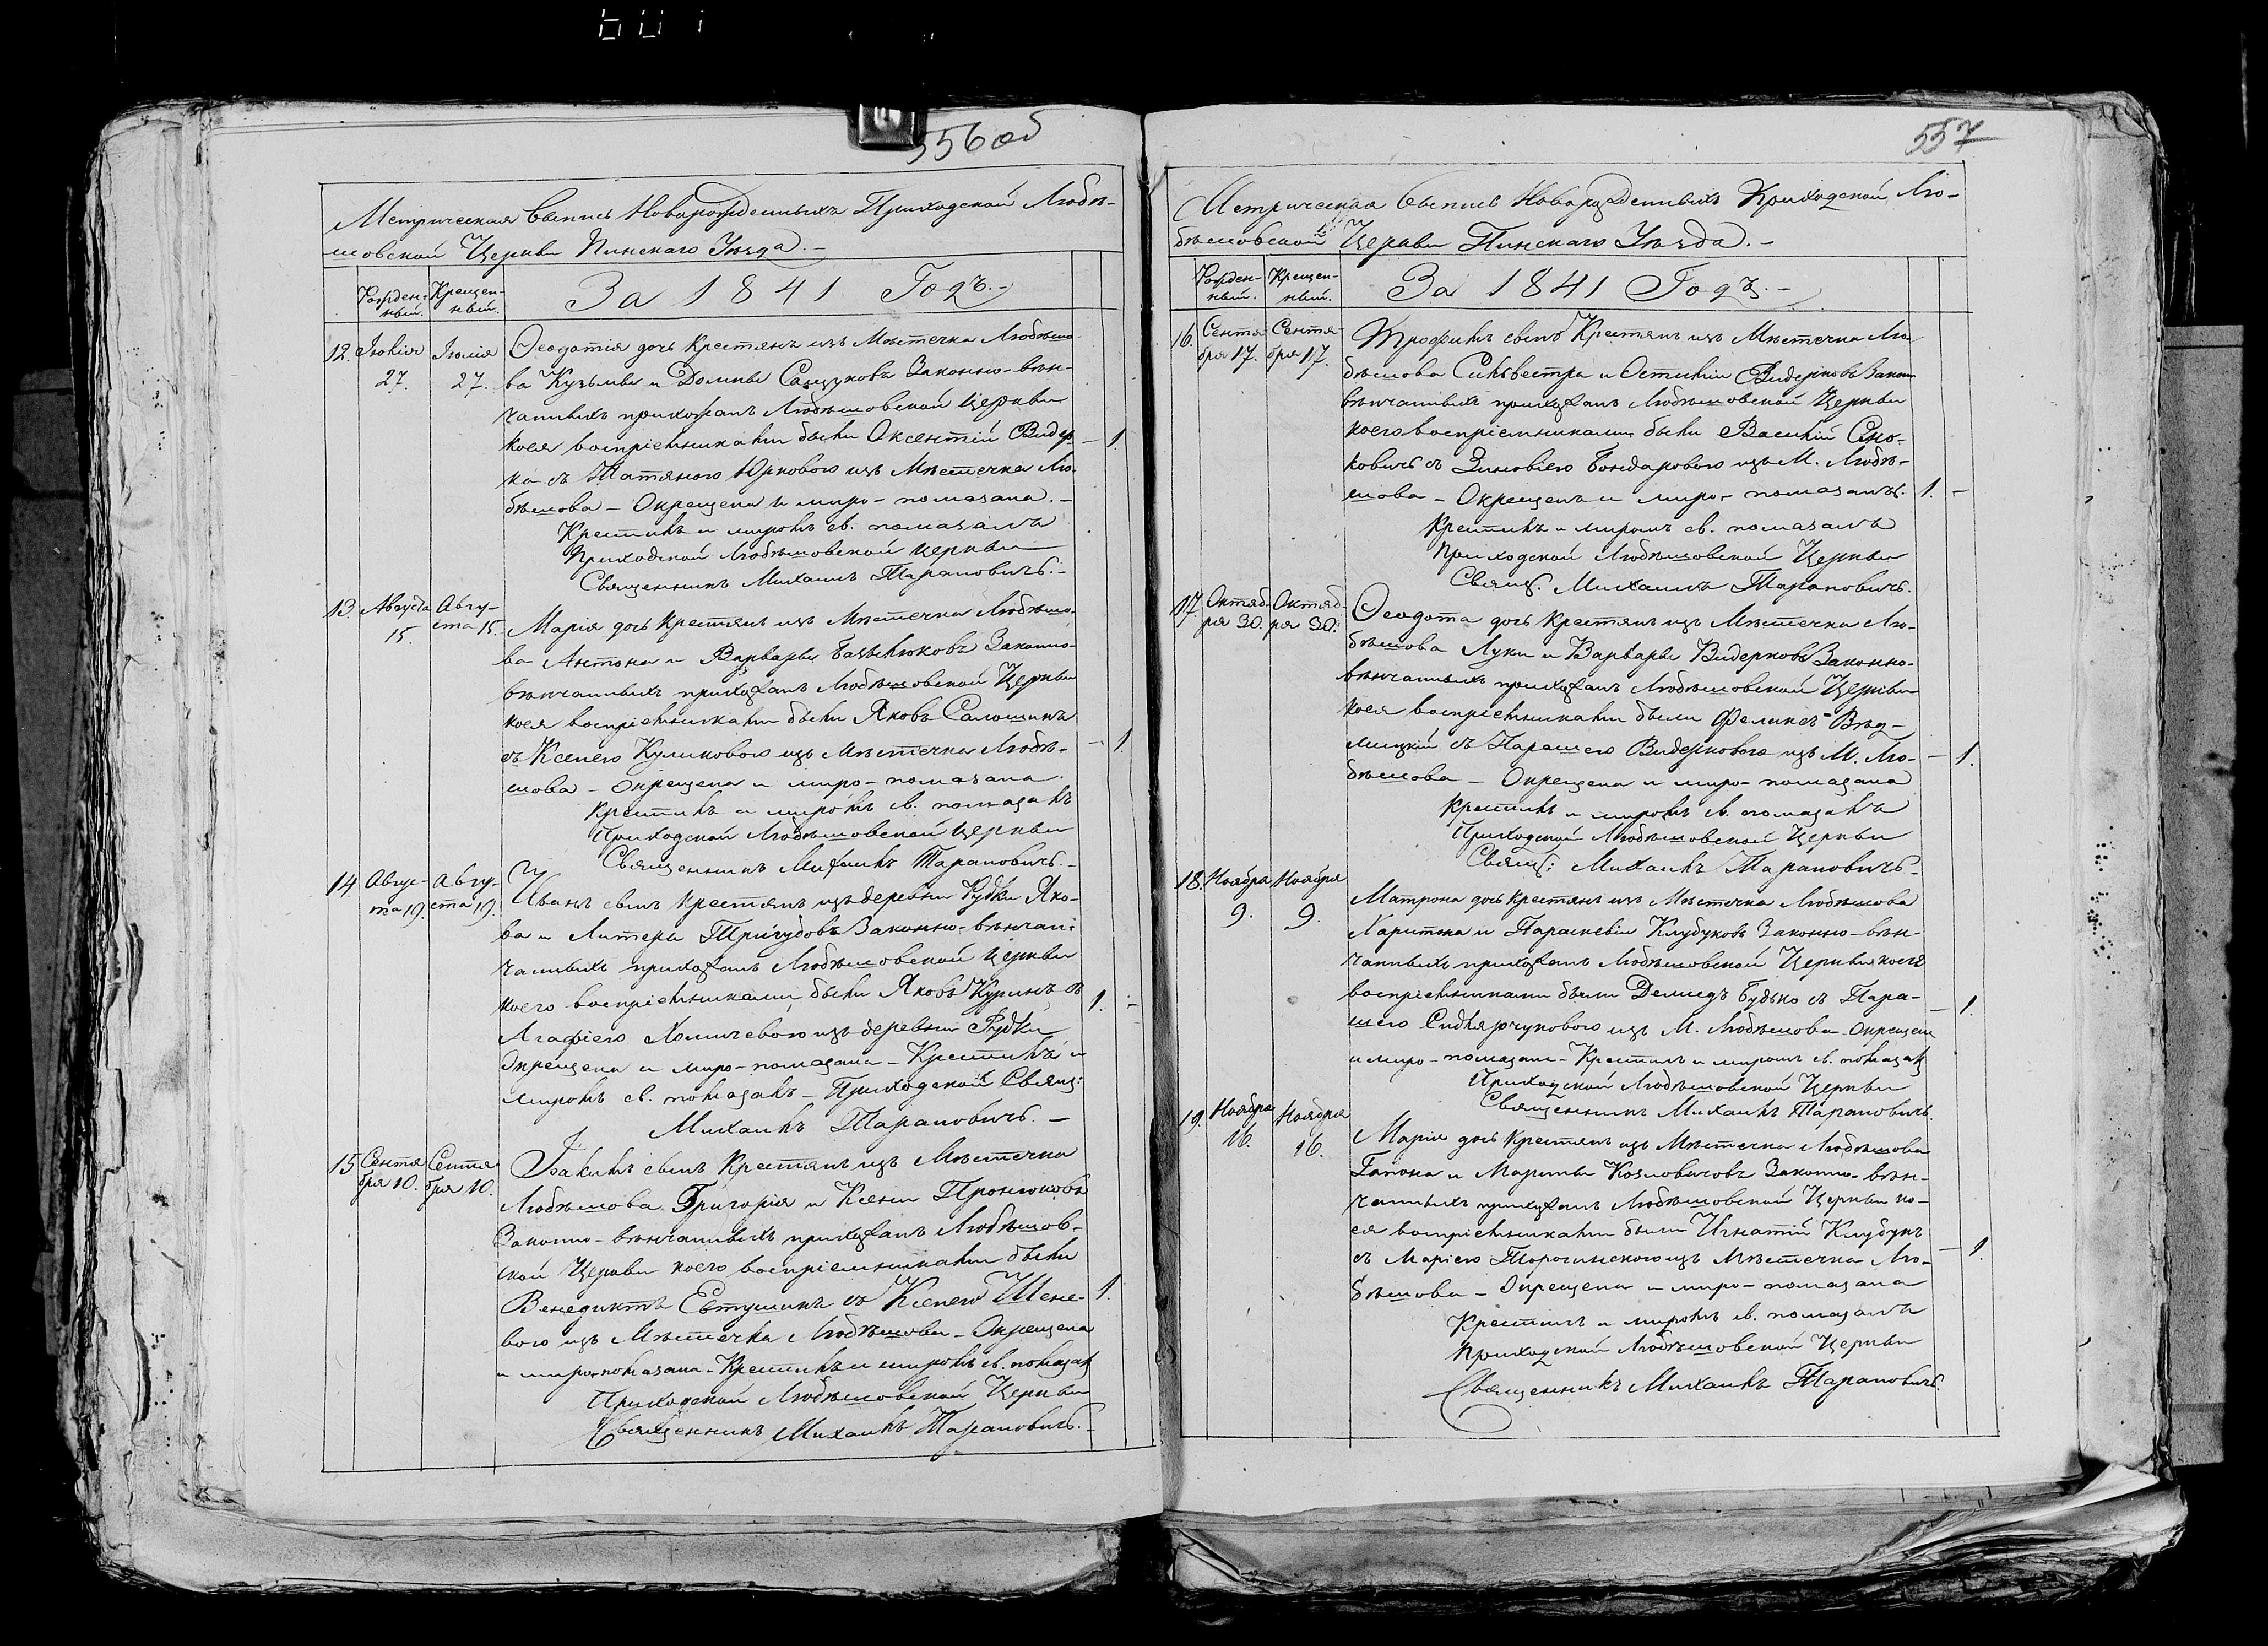 556об
Метрическая Выпись Новорожденныхъ Приходской Любѣ-
шовской Церкви Пинскаго Уѣзда. -
Рожден-
ный.
Крещен-
ный.
За 1841 Годъ. -
12.
Іюлія
27.
Іюлія
27.
Ѳеодотія дочь Крестянъ изъ Мѣстечка Любѣшо-
ва Кузьмы и Домны Законно-вѣн-
чанныхъ прихожанъ Любѣшовской Церкви
коея воспріемниками были Оксентій Видер-
ка съ Татяною Юрковою изъ Мѣстечка Лю-
бѣшова - Окрещена и миро-помазана. -
Крестилъ и миромъ св. помазалъ
Приходской Любѣшовской церкви
Священникъ Михаилъ Тарановичъ. -
- 1.
13.
Августа
15.
Авгу-
ста 15.
Марія дочь Крестянъ изъ Мѣстечка Любѣшо-
ва Антона и Варвары Базылюковъ Законно-
вѣнчанныхъ прихожанъ Любѣшовской Церкви
коея воспріемниками были Яковъ Салошинъ
съ Ксенею Куликовою изъ Мѣстечка Любѣ-
шова - Окрещена и миро-помазана.
Крестилъ и миромъ св. помазалъ
Приходской Любѣшовской церкви
Священникъ Михаилъ Тарановичъ. -
- 1.
14.
Авгус-
та 19.
Авгу-
ста 19.
Иванъ сынъ крестянъ изъ деревни Рудки Яко-
ва и Тригубовъ Законно-вѣнчан-
чанныхъ прихожанъ Любѣшовской церкви
коего воспріемниками были Яковъ Куринъ съ
Агафіею Хомичевою изъ деревни Рудки
Окрещена и миро-помазана - Крестилъ и
миромъ св. помазалъ - Приходской Свящ:
Михаилъ Тарановичъ. -
1. -
15.
Сентя
бря 10.
Сентя
бря 10.
Іоакимъ сынъ Крестянъ изъ Мѣстечка
Любѣшова Григорія и Ксени Пронюковъ
Законно-вѣнчанныхъ прихожанъ Любѣшов-
ской Церкви коего воспріемниками были
Венедиктъ Евтушикъ съ Ксенею Шене-
вою изъ Мѣстечка Любѣшова - Окрещена
и миро-помазана - Крестилъ и миромъ св. помазал
Приходской Любѣшовской Церкви
Священникъ Михаилъ Тарановичъ. -
1.
557
Метрическая Выпись Новорожденныхъ Приходской Лю-
бѣшовской Церкви Пинскаго Уѣзда. -
Рожден-
ный.
Крещен-
ный.
За 1841 Годъ. -
16.
Сентя-
бря 17.
Сентя-
бря 17.
Трофимъ сынъ Крестянъ изъ Мѣстечка Лю-
бѣшова Сильвестра и Остихіи Видерковъ Закон-
вѣнчанныхъ прихожанъ Любѣшовской Церкви
коего воспріемниками были Василій Сено-
ковичъ съ Зиновіею Бондаровою изъ М. Любѣ-
шова - Окрещенъ и миро-помазанъ.
Крестилъ и миромъ св. помазалъ
Приходской Любѣшовской Церкви
Свящ. Михаилъ Тарановичъ.
1. -
17.
Октяб-
ря 30.
Октяб-
ря 30.
Ѳеодота дочь Крестянъ изъ Мѣстечка Лю-
бѣшова Луки и Варвары Видерковъ Законно-
вѣнчанныхъ прихожанъ Любѣшовской Церкви
коея воспріемниками были Феликсъ
съ Парашею Видерковою изъ М. Лю-
бѣшова - Окрещена и миро-помазана
Крестилъ и миромъ св. помазалъ
Приходской Любѣшовской Церкви
Свящ: Михаилъ Тарановичъ. -
- 1.
18.
Ноября
9.
Ноября
9.
Матрона дочь крестянъ изъ Мѣстечка Любѣшова
Харитона и Параскевіи Клубуковъ Законно-вѣн-
чанныхъ прихожанъ Любѣшовской Церкви коея
воспріемниками были Демидъ Будько съ Пара-
шею изъ М. Любѣшова - Окрещена
и миро-помазана - Крестилъ и миромъ св. помазал
Приходской Любѣшовской Церкви
Священникъ Михаилъ Тарановичъ.
- 1.
19.
Ноября
16.
Ноября
16.
Марія дочь Крестянъ изъ Мѣстечка Любѣшова
Гапона и Марины Козловичовъ Законно-вѣн-
чанныхъ прихожанъ Любѣшовской Церкви ко-
ея воспріемниками были Игнатій Клубукъ
съ Маріею Торочинскою изъ Мѣстечка Лю-
бѣшова - Окрещена и миро-помазана
Крестилъ и миромъ св. помазалъ
Приходской Любѣшовской Церкви
Священникъ Михаилъ Тарановичъ.
- 1.